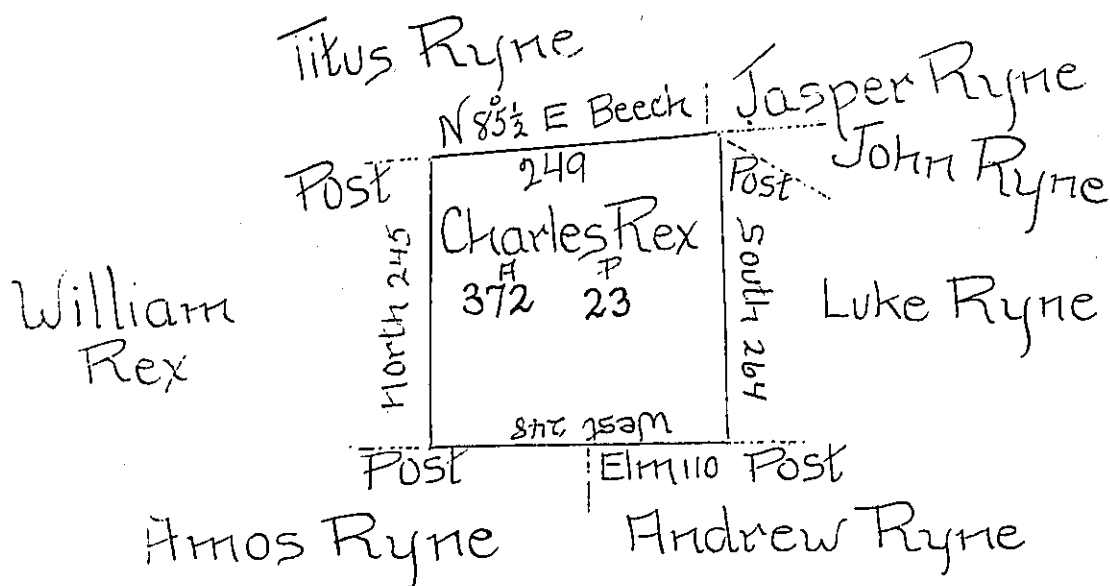 Titus Ryne
N 85½° E Beech
Jasper Ryne
John Ryne
Post
249
Post
Charles Rex
A P
372 23
North 245
South 264
William
Rex
Luke Ryne
West 248
Post
Elm 110 Post
Amos Ryne
Andrew Ryne